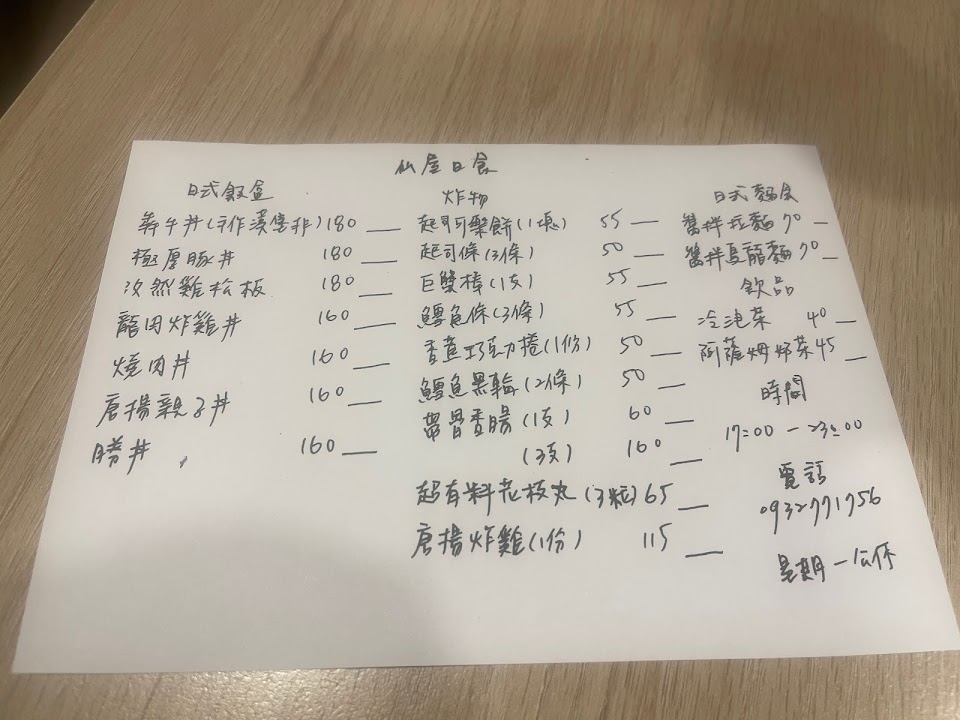 仙屋日食
日式飯盒
壽牛丼 180
極厚豚丼 180
汝然雞松板 180
龍田炸雞丼 160
燒肉丼 160
唐揚親子丼 160
勝丼 160
炸物
起司可樂餅(1塊) 55
起司條(3條) 50
巨蟹棒(1支) 55
鱈魚條(3條) 55
香蕉巧克力捲(1份) 50
鱈魚黑輪(2條) 50
帶骨香腸(1支) 60
(3支) 160
超有料花枝丸(3粒) 65
唐揚炸雞(1份) 115
日式麵食
醬拌拉麵 70
醬拌烏龍麵 70
飲品
冷泡茶 40
阿薩姆奶茶 45
時間
17:00 - 23:00
電話
0932771756
星期一公休